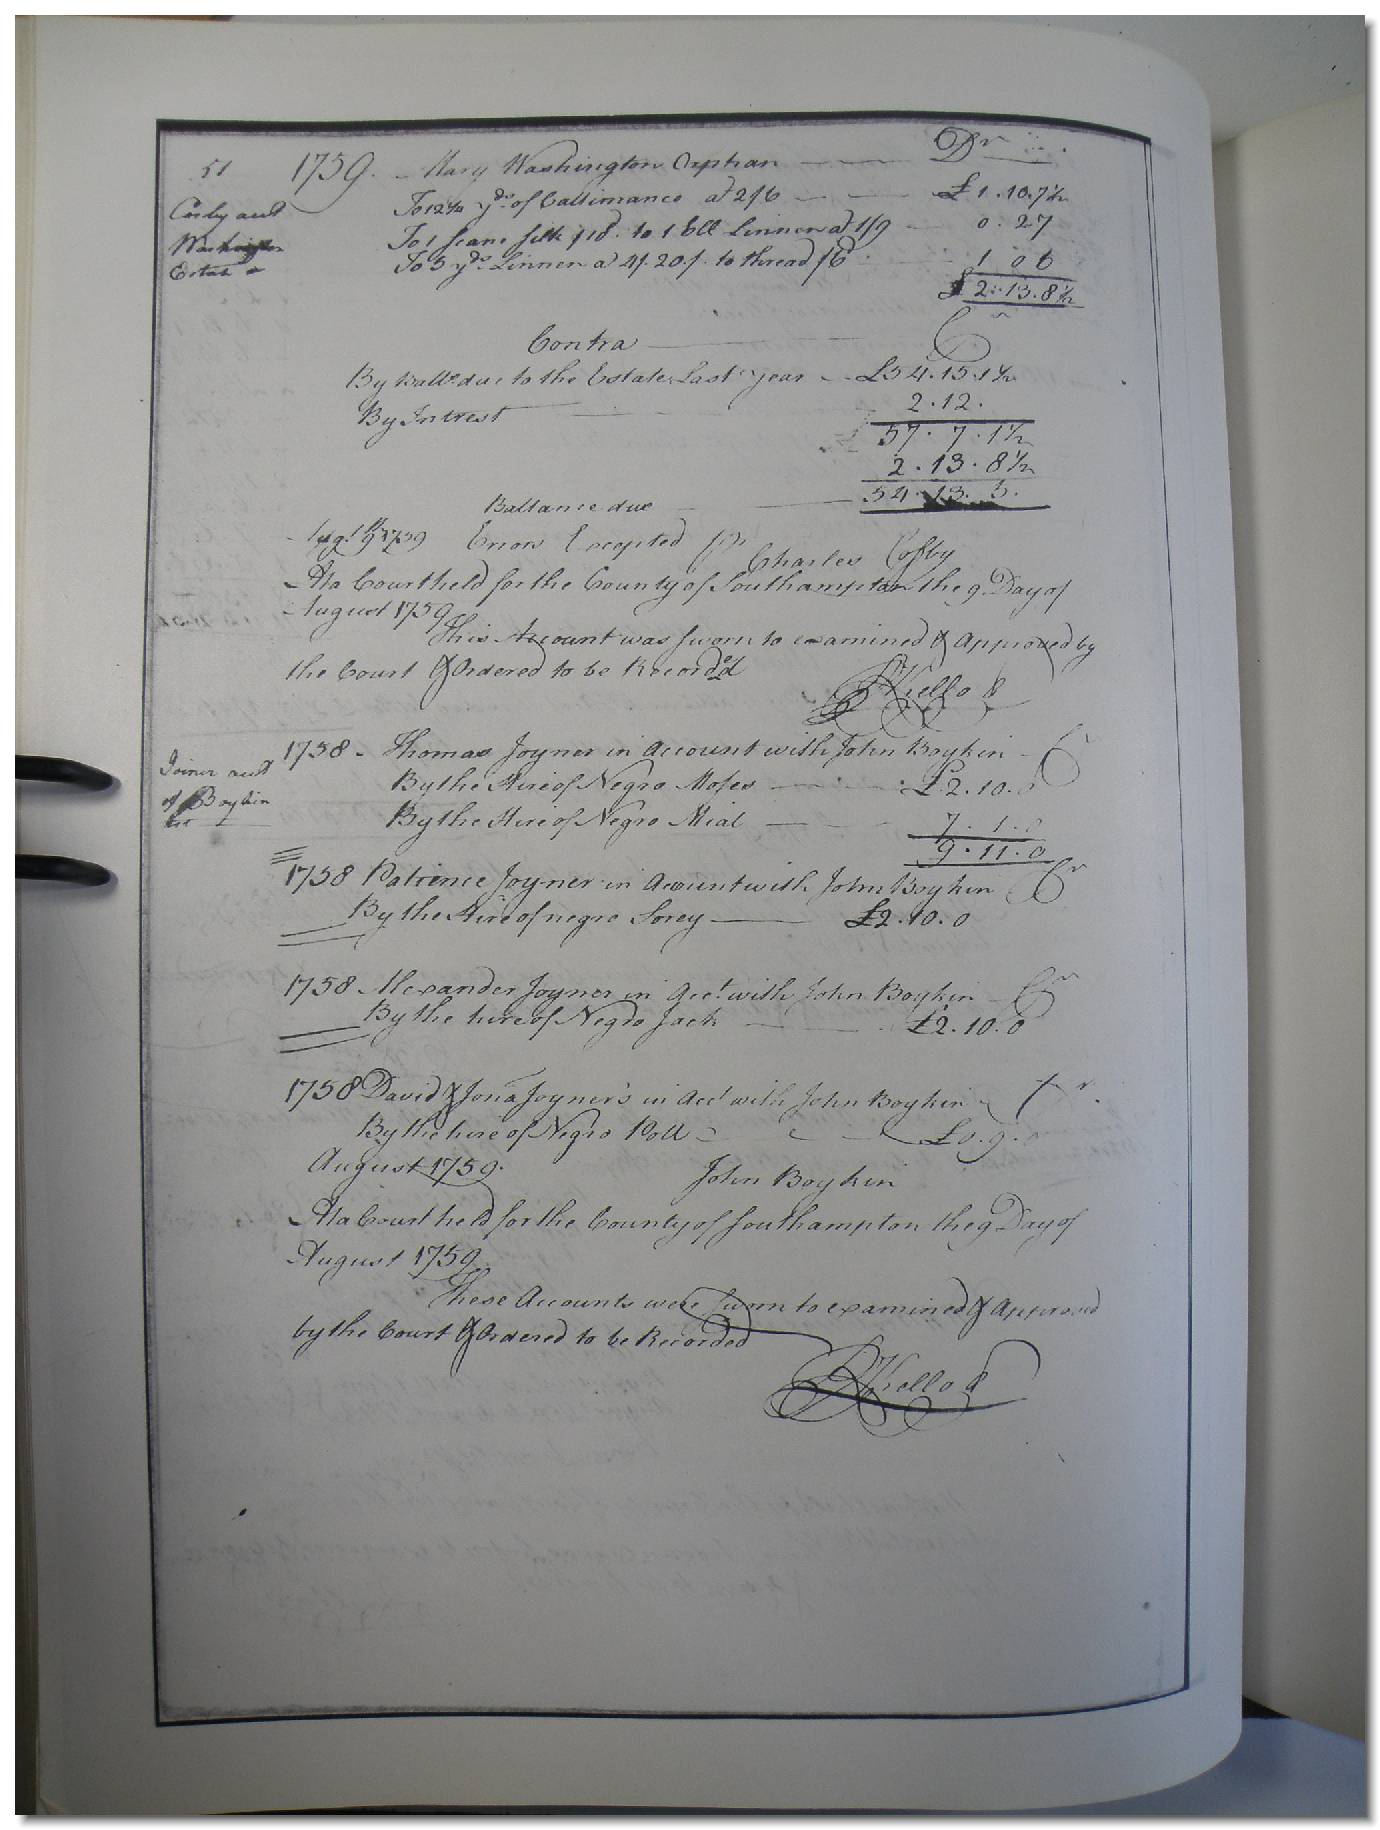 51 1759. Mary Washington Orphan Dr
Cosby acct
Washington
Estate
To 12 1/4 yds of Callimanco at 2/6 £1.10.7 1/2
To 1 Scane silk 10d. to 1 Ell Linnen at 1/9 0.27
To 5 yds Linnen a 4/. 20/. to thread /6 1 0 6
£ 2.13.8 1/2
Contra Cr
By Balle due to the Estate Last year £54.15.1 1/2
By Intrest 2.12.
57.7.1 1/2
2.13.8 1/2
Ballance due 54.13.5.
Augt 9 1759 Errors Excepted pr
Charles Cosby
At a Court held for the County of Southampton the 9 Day of
August 1759
This Account was sworn to examined & Approved by
the Court & Ordered to be Recorded
R Kello
Joiner acct
of Boykin
1758 Thomas Joyner in Account with John Boykin Cr
By the Hire of Negro Moses £2.10.0
By the Hire of Negro Hial 7.1.0
9.11.0
1758 Patience Joyner in Account with John Boykin Cr
By the Hire of negro Sorey £2.10.0
1758 Alexander Joyner in Acct with John Boykin Cr
By the hire of Negro Jack £2.10.0
1758 David & Jona Joyner's in Acct with John Boykin Cr.
By the hire of Negro Poll £0.9.
August 1759. John Boykin
At a Court held for the County of Southampton the 9 Day of
August 1759
These Accounts were sworn to examined & Approved
by the Court & Ordered to be Recorded
R Kello